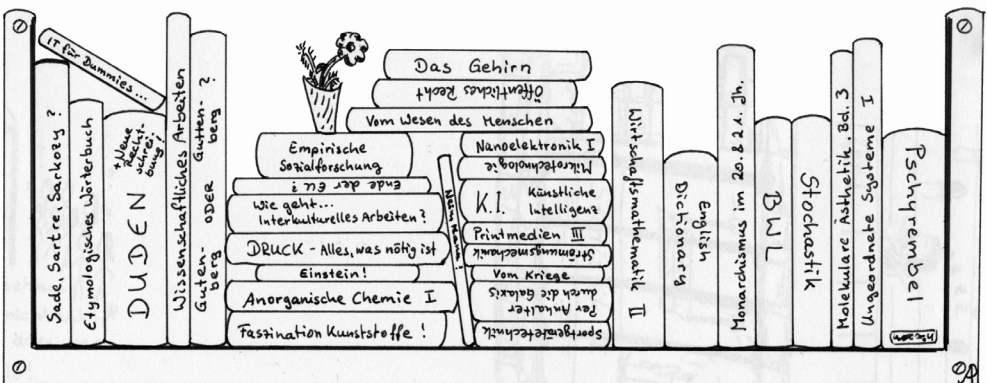 IT für Dummies...
Sade, Sartre, Sarkozy?
Etymologisches Wörterbuch
DUDEN
+ Neue
Recht-
schrei-
bung!
Wissenschaftliches Arbeiten
Guten-
berg
ODER
Gutten-
berg
?
Empirische
Sozialforschung
Ende der EU?
Wie geht...
Interkulturelles Arbeiten?
DRUCK - Alles, was nötig ist
Einstein!
Anorganische Chemie I
Faszination Kunststoffe!
Das Gehirn
Öffentliches Recht
Vom Wesen des Menschen
Nanoelektronik I
Mikrotechnologie
K.I.
Künstliche
Intelligenz
Printmedien III
Strömungsmechanik
Vom Kriege
Per Anhalter
durch die Galaxis
Sportgerätetechnik
Wirtschaftsmathematik II
English
Dictionary
Monarchismus im 20. & 21. Jh.
BWL
Stochastik
Molekulare Ästhetik, Bd. 3
Ungeordnete Systreme I
Pschyrembel